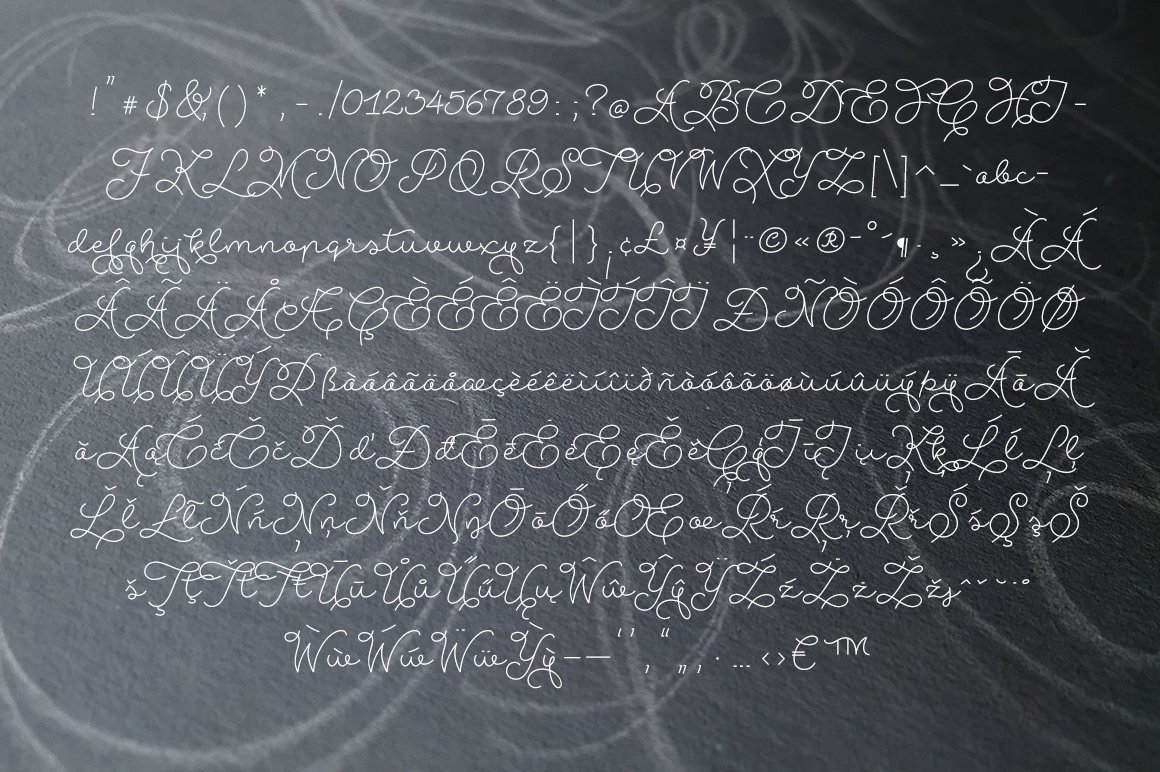 !"#$&'()*,-./0123456789:;?@ABCDEFGHI-
JKLMNOPQRSTUVWXYZ[\]^_`abc-
defghijklmnopqrstuvwxyz{|}¡¢£¤¥¦¨©«®¯°´¶·¸»¿ÀÁ
ÂÃÄÅÆÇÈÉÊËÌÍÎÏÐÑÒÓÔÕÖØ
ÙÚÛÜÝÞßàáâãäåæçèéêëìíîïðñòóôõöøùúûüýþÿĀāĂ
ăĄąĆćČčĎďĐđĒēĖėĘęĚěĢģĪīĮįıĶķĹĺĻļ
ĽľŁłŃńŅņŇňŊŋŌōŐőŒœŔŕŖŗŘřŚśŞşŠ
šŢţŤťŦŧŪūŮůŰűŲųŴŵŶŷŸŹźŻżŽžſˆˇ˘˙˚
ẀẁẂẃẄẅỲỳ–—‘’‚“„‚·…‹›€™